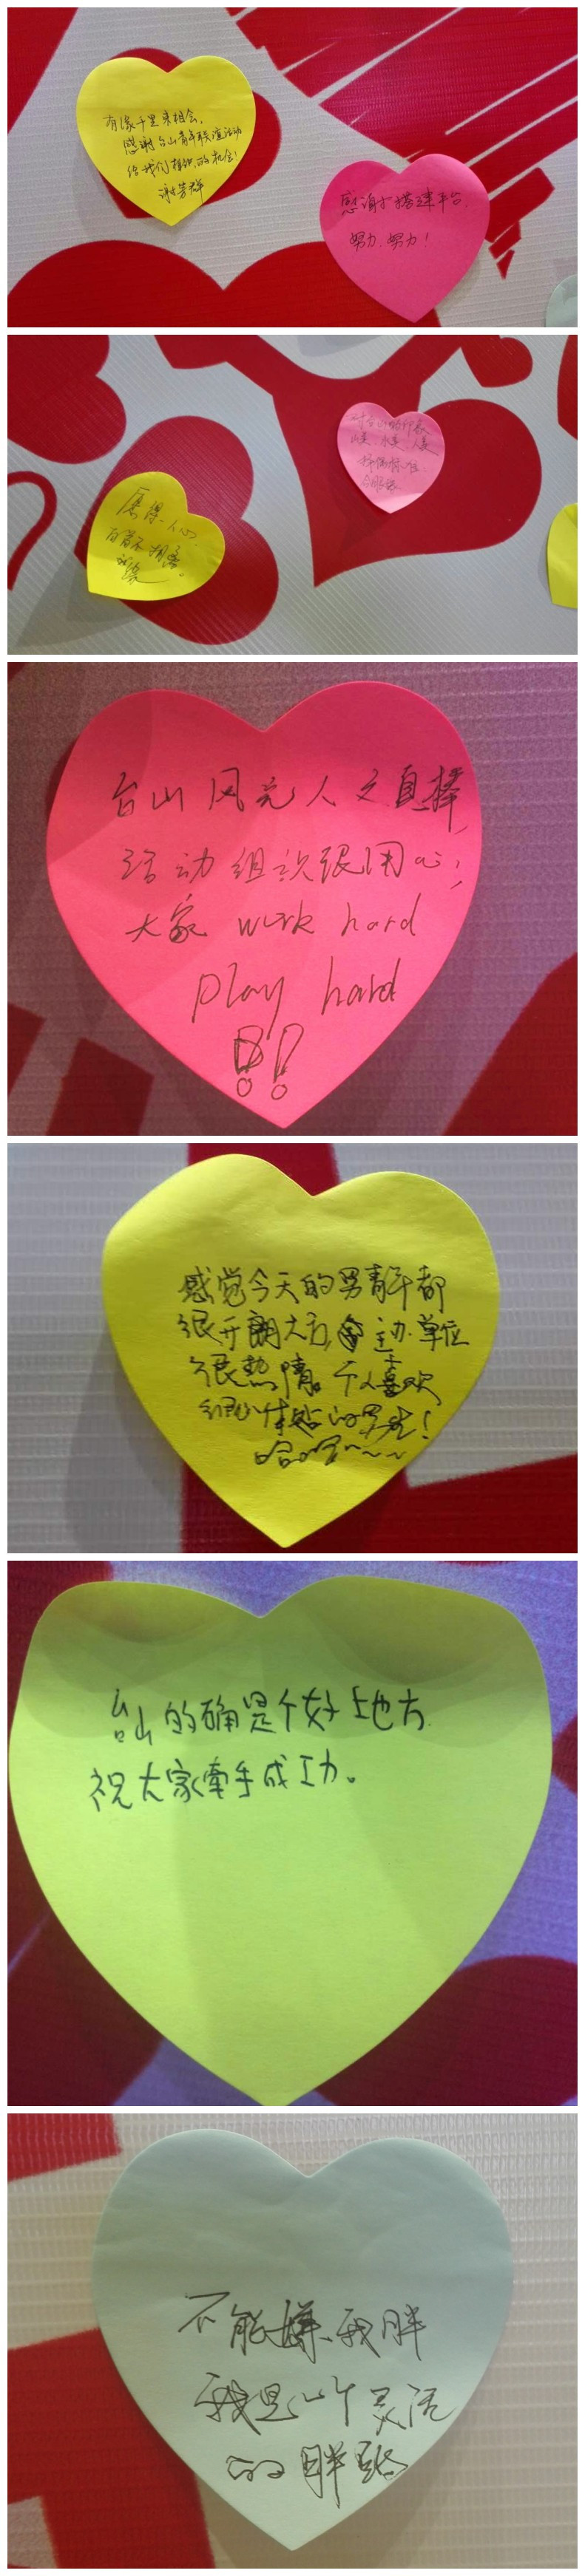 有缘千里来相会,
感谢台山青年联谊活动
给我们相识的机会!
谢芳群
感谢搭建平台,
努力,努力!
愿得一人心,
白首不相离。
对台山的印象
山美、水美、人美
台山风光人文真棒
活动组织很用心;
大家 work hard
play hard
!!
感觉今天的男青年都
很开朗大方,主办单位
很热情。个人喜欢
细心体贴的男生!
哈哈~~~
台山的确是个好地方.
祝大家牵手成功。
不能嫌我胖
我是一个灵活
的胖路